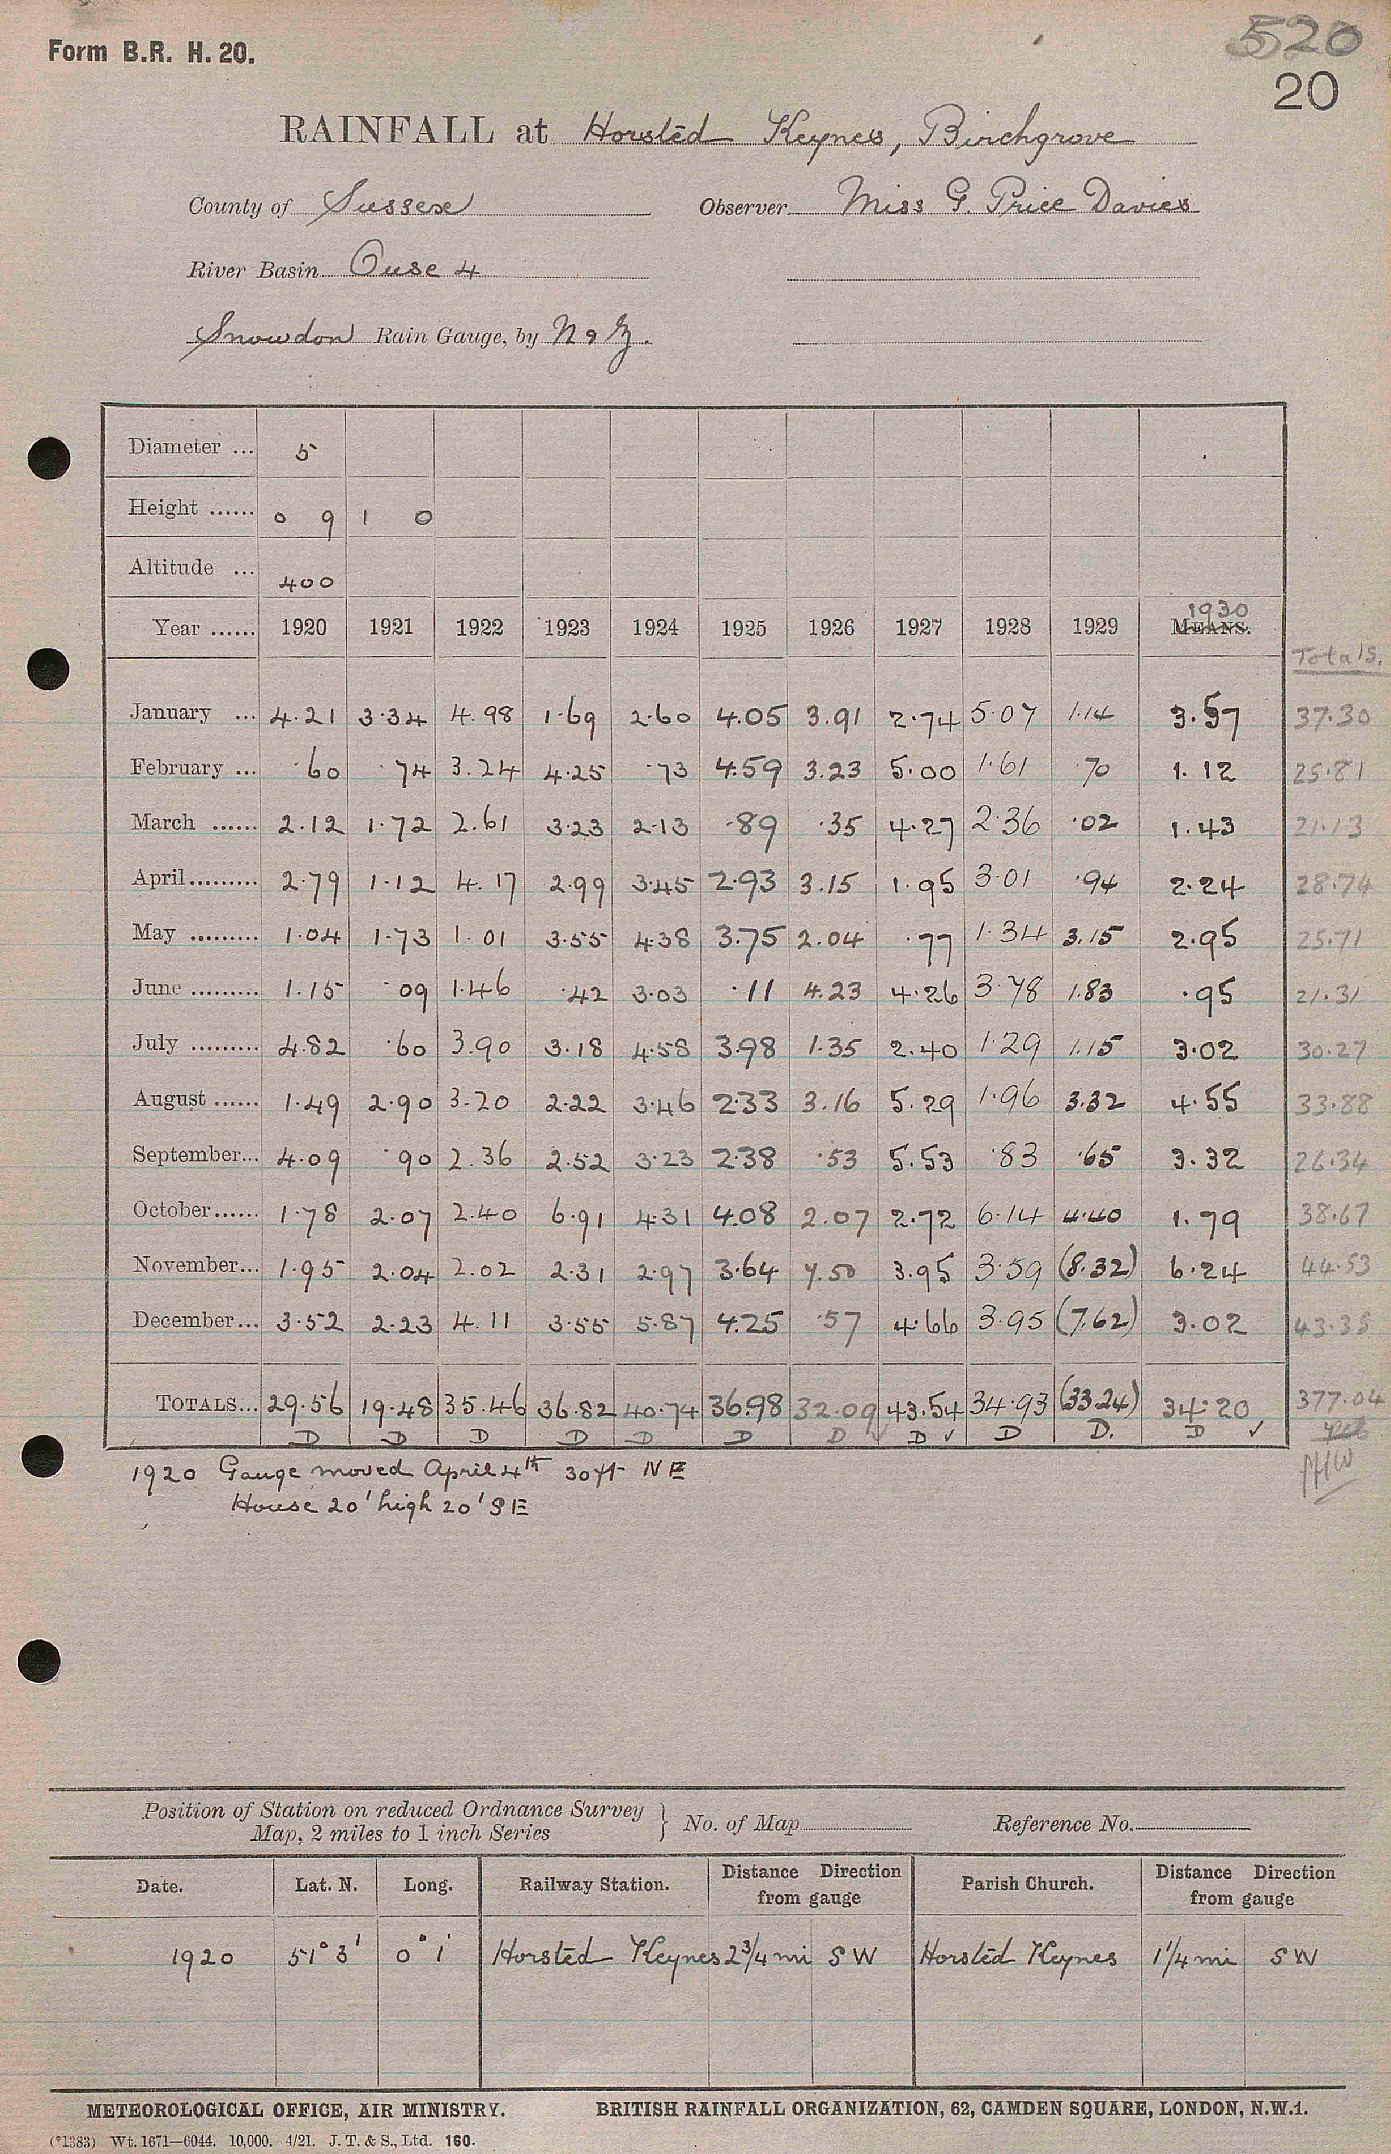 520
Form B.R. H. 20.
20
RAINFALL at Horsted Keynes, Birchgrove
County of Sussex Observer Miss G. Price Davies
River Basin Ouse 4
Snowdon Rain Gauge, by N & Z.
Diameter ... 5
Height ...... 0 9 1 0
Altitude ... 400
1930
Year ...... 1920 1921 1922 1923 1924 1925 1926 1927 1928 1929 MEANS.
Totals.
January ... 4.21 3.34 4.98 1.69 2.60 4.05 3.91 2.74 5.07 1.14 3.57 37.30
February ... .60 .74 3.24 4.25 .73 4.59 3.23 5.00 1.61 .70 1.12 25.81
March ...... 2.12 1.72 2.61 3.23 2.13 .89 .35 4.27 2.36 .02 1.43 21.13
April ......... 2.79 1.12 4.17 2.99 3.45 2.93 3.15 1.95 3.01 .94 2.24 28.74
May ......... 1.04 1.73 1.01 3.55 4.38 3.75 2.04 .77 1.34 3.15 2.95 25.71
June ......... 1.15 .09 1.46 .42 3.03 .11 4.23 4.26 3.78 1.83 .95 21.31
July ......... 4.82 .60 3.90 3.18 4.58 3.98 1.35 2.40 1.29 1.15 3.02 30.27
August ...... 1.49 2.90 3.20 2.22 3.46 2.33 3.16 5.29 1.96 3.32 4.55 33.88
September... 4.09 .90 2.36 2.52 3.23 2.38 .53 5.53 .83 .65 3.32 26.34
October...... 1.78 2.07 2.40 6.91 4.31 4.08 2.07 2.72 6.14 4.40 1.79 38.67
November... 1.95 2.04 2.02 2.31 2.97 3.64 7.50 3.95 3.59 (8.32) 6.24 44.53
December... 3.52 2.23 4.11 3.55 5.87 4.25 .57 4.66 3.95 (7.62) 3.02 43.35
TOTALS... 29.56 19.48 35.46 36.82 40.74 36.98 32.09 43.54 34.93 (33.24) 34.20 377.04
D D D D D D D D ✓ D D. D ✓
1920 Gauge moved April 4th 30 ft NE
House 20' high 20' SE
Position of Station on reduced Ordnance Survey
Map, 2 miles to 1 inch Series } No. of Map Reference No.
Date. Lat. N. Long. Railway Station. Distance Direction from gauge Parish Church. Distance Direction from gauge
1920 51° 3' 0° 1' Horsted Keynes 2 3/4 mi SW Horsted Keynes 1 1/4 mi SW
METEOROLOGICAL OFFICE, AIR MINISTRY. BRITISH RAINFALL ORGANIZATION, 62, CAMDEN SQUARE, LONDON, N.W.1.
(*1383) Wt. 1671—6044. 10,000. 4/21. J. T. & S., Ltd. 160.